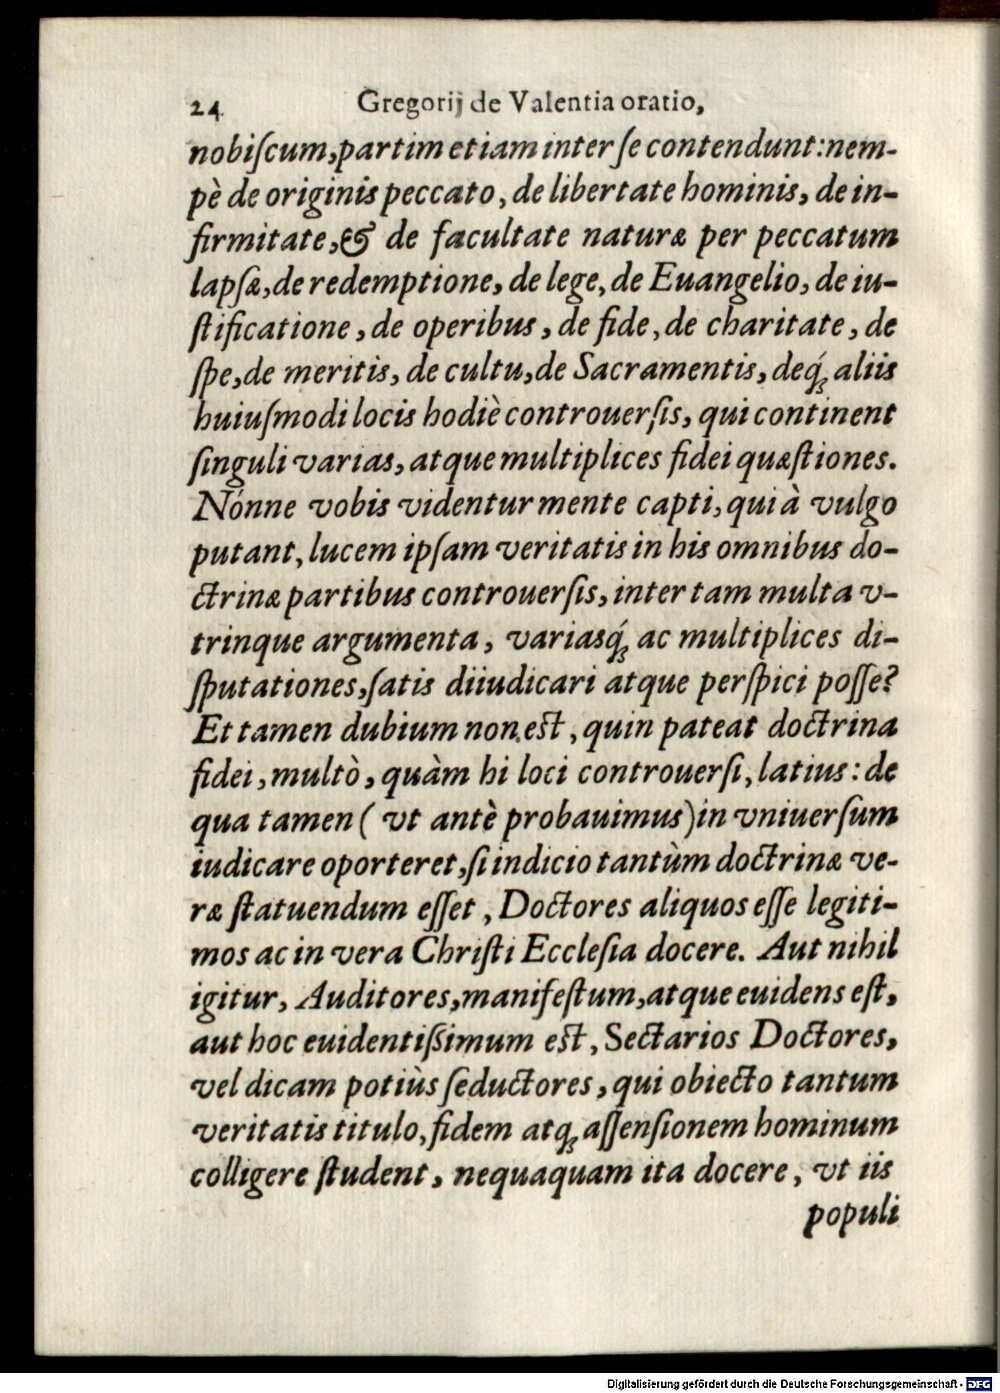 24 Gregorij de Valentia oratio,
nobiſcum, partim etiam inter ſe contendunt: nem-
pè de originis peccato, de libertate hominis, de in-
firmitate, & de facultate naturæ per peccatum
lapſæ, de redemptione, de lege, de Euangelio, de iu-
ſtificatione, de operibus, de fide, de charitate, de
ſpe, de meritis, de cultu, de Sacramentis, deq́ꝫ aliis
huiuſmodi locis hodiè controuerſis, qui continent
ſinguli varias, atque multiplices fidei quæſtiones.
Nónne vobis videntur mente capti, qui à vulgo
putant, lucem ipſam veritatis in his omnibus do-
ctrinæ partibus controuerſis, inter tam multa v-
trinque argumenta, variasq́ꝫ ac multiplices di-
ſputationes, ſatis diiudicari atque perſpici poſſe?
Et tamen dubium non eſt, quin pateat doctrina
fidei, multò, quàm hi loci controuerſi, latius: de
qua tamen ( vt antè probauimus) in vniuerſum
iudicare oporteret, ſi indicio tantùm doctrinæ ve-
ræ ſtatuendum eſſet, Doctores aliquos eſſe legiti-
mos ac in vera Chriſti Eccleſia docere. Aut nihil
igitur, Auditores, manifeſtum, atque euidens eſt,
aut hoc euidentißimum eſt, Sectarios Doctores,
vel dicam potiùs ſeductores, qui obiecto tantum
veritatis titulo, fidem atqꝫ aſſenſionem hominum
colligere ſtudent, nequaquam ita docere, vt iis
populi
Digitalisierung gefördert durch die Deutsche Forschungsgemeinschaft - DFG